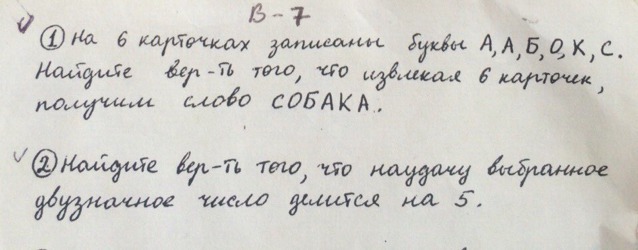 В-7
① На 6 карточках записаны буквы А, А, Б, О, К, С.
Найдите вер-ть того, что извлекая 6 карточек,
получим слово СОБАКА.
② Найдите вер-ть того, что наудачу выбранное
двузначное число делится на 5.